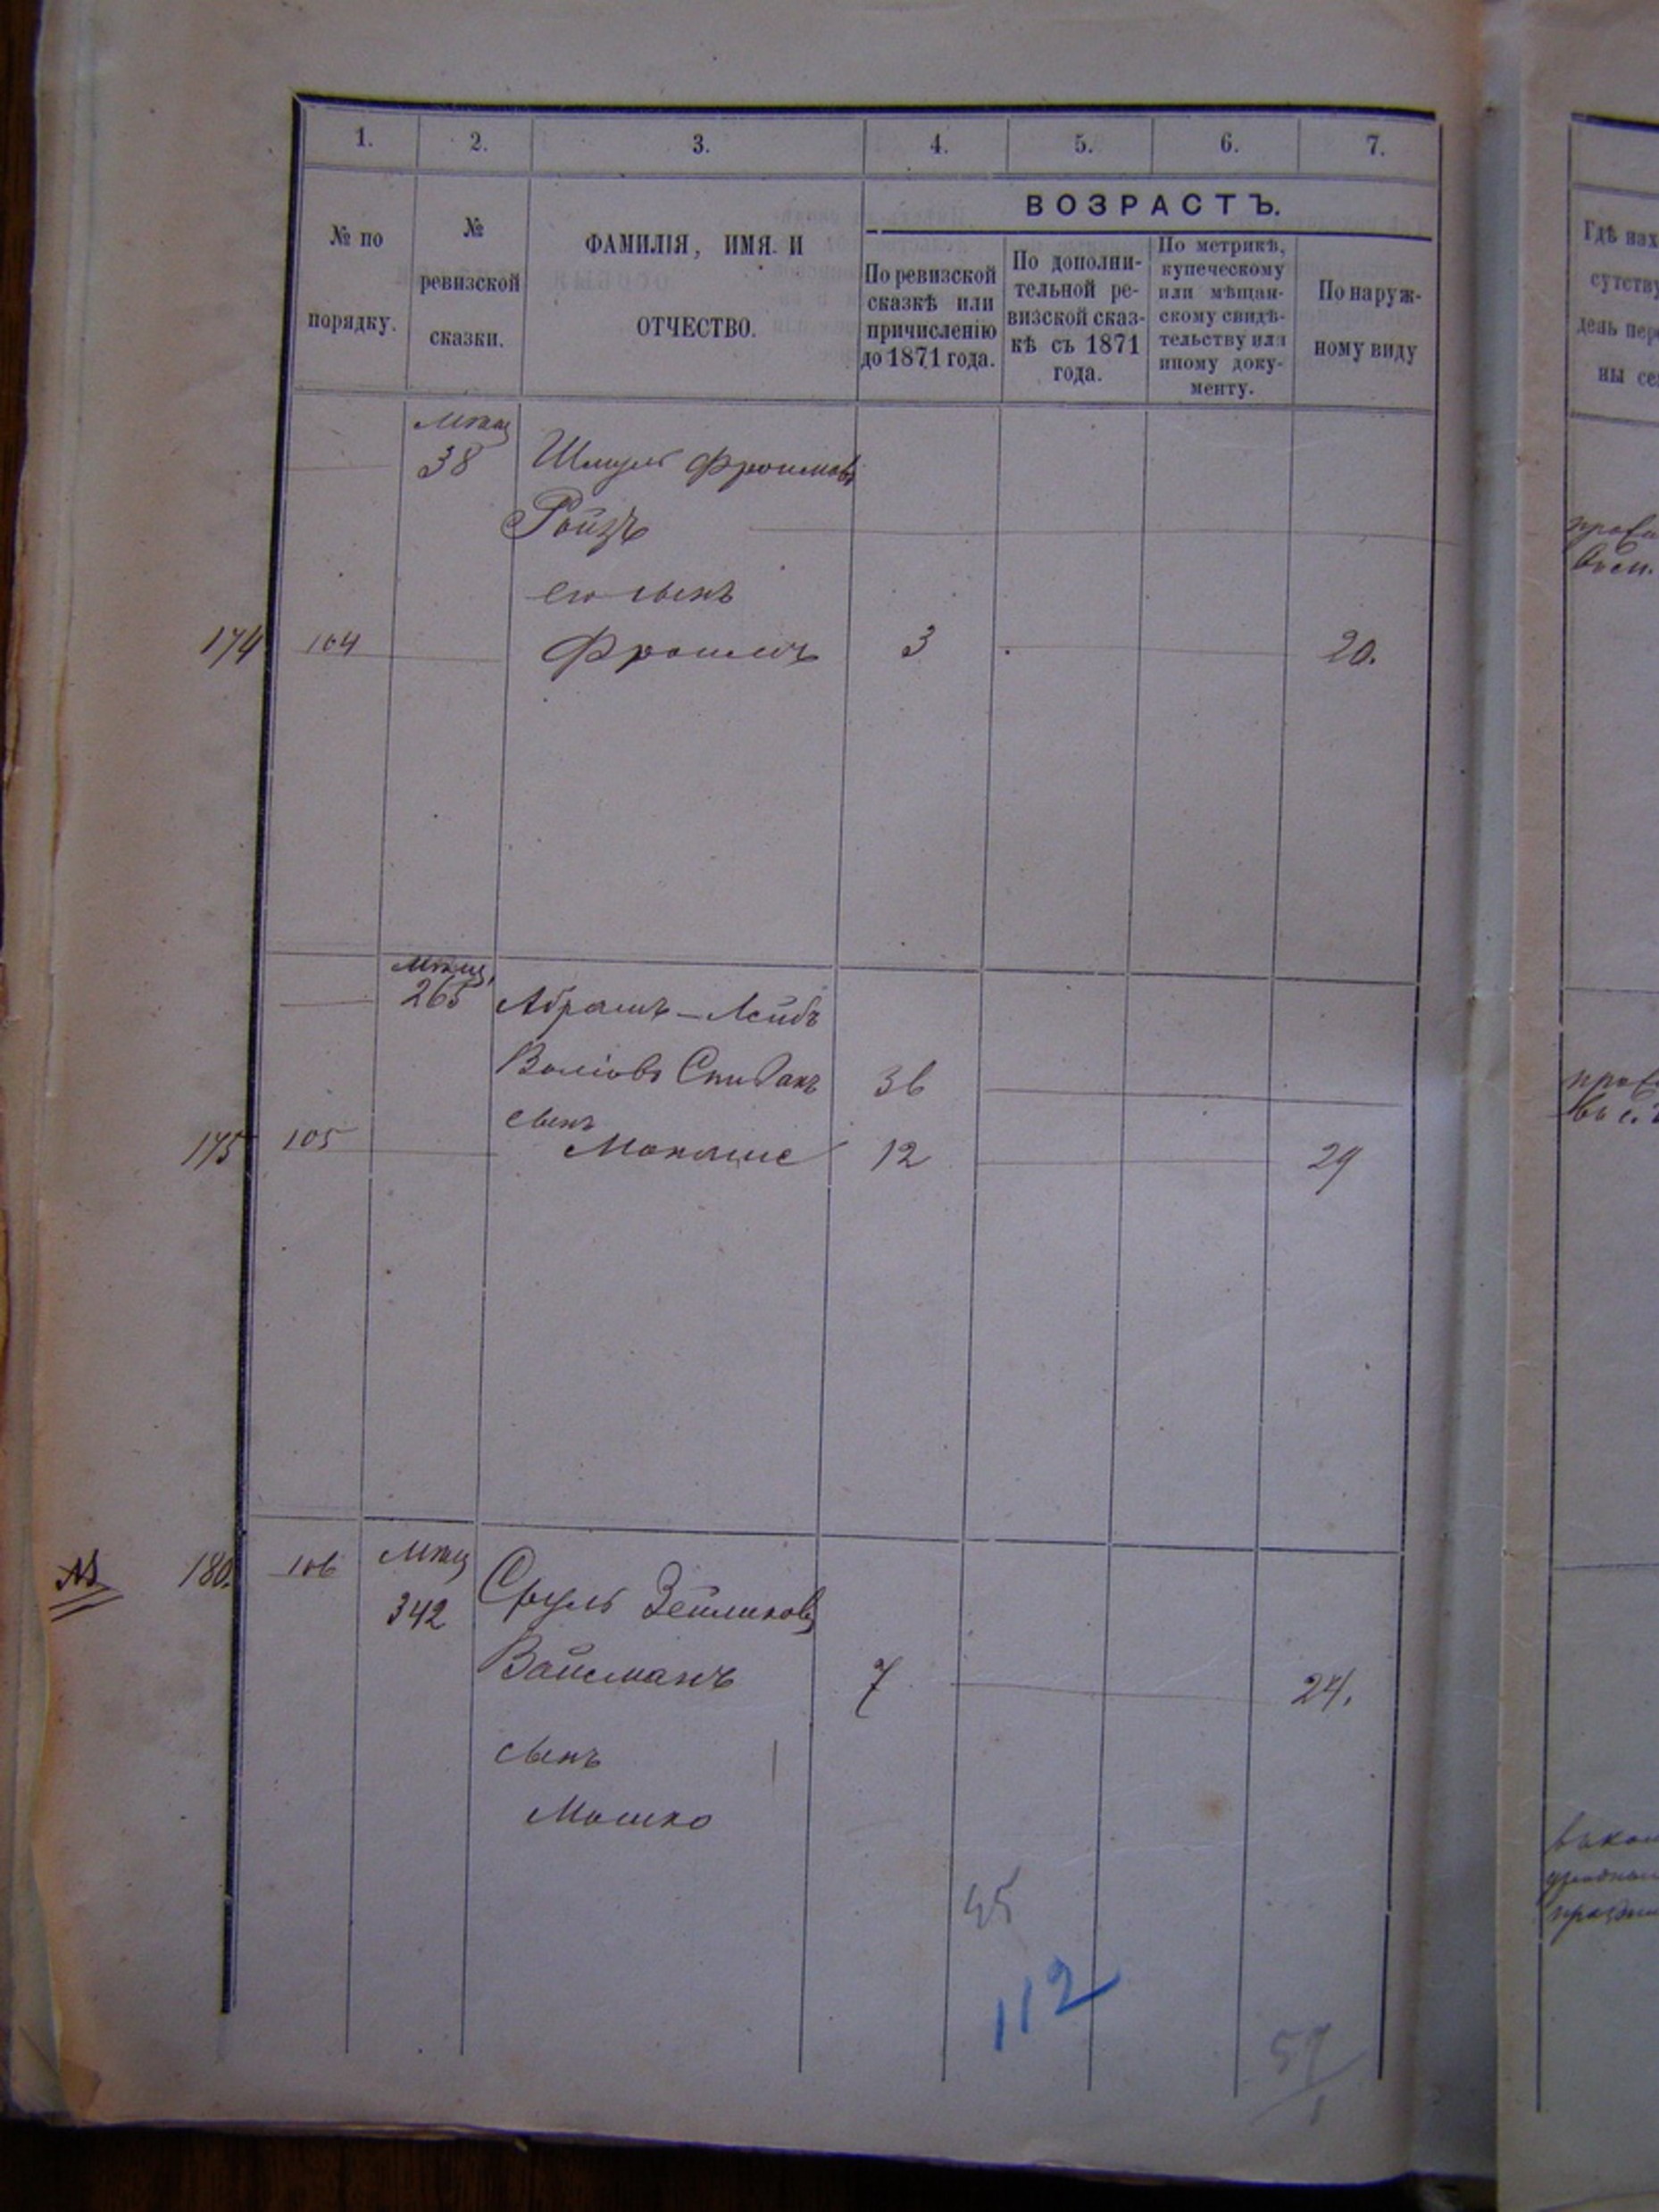 1. 2. 3. 4. 5. 6. 7.
№ по порядку.
№ ревизской сказки.
ФАМИЛІЯ, ИМЯ И ОТЧЕСТВО.
ВОЗРАСТЪ.
По ревизской
сказкѣ или
причисленію
до 1871 года.
По дополни-
тельной ре-
визской сказ-
кѣ съ 1871
года.
По метрикѣ,
купеческому
или мѣщан-
скому свидѣ-
тельству или
иному доку-
менту.
По наруж-
ному виду
мѣщ
38 Шмуль Фроимовъ
Ройзъ
его сынъ
174 104 Фроимъ 3 20.
мѣщ
265 Абрамъ-Лейбъ
Волковъ Спивакъ 36
сынъ
175 105 Монаше 12 29
180. 106 мѣщ
342 Сруль Зейликовъ
Вайсманъ 7 24.
сынъ
Мошко
45
112
59
Гдѣ нах
сутству
день пер
ны се